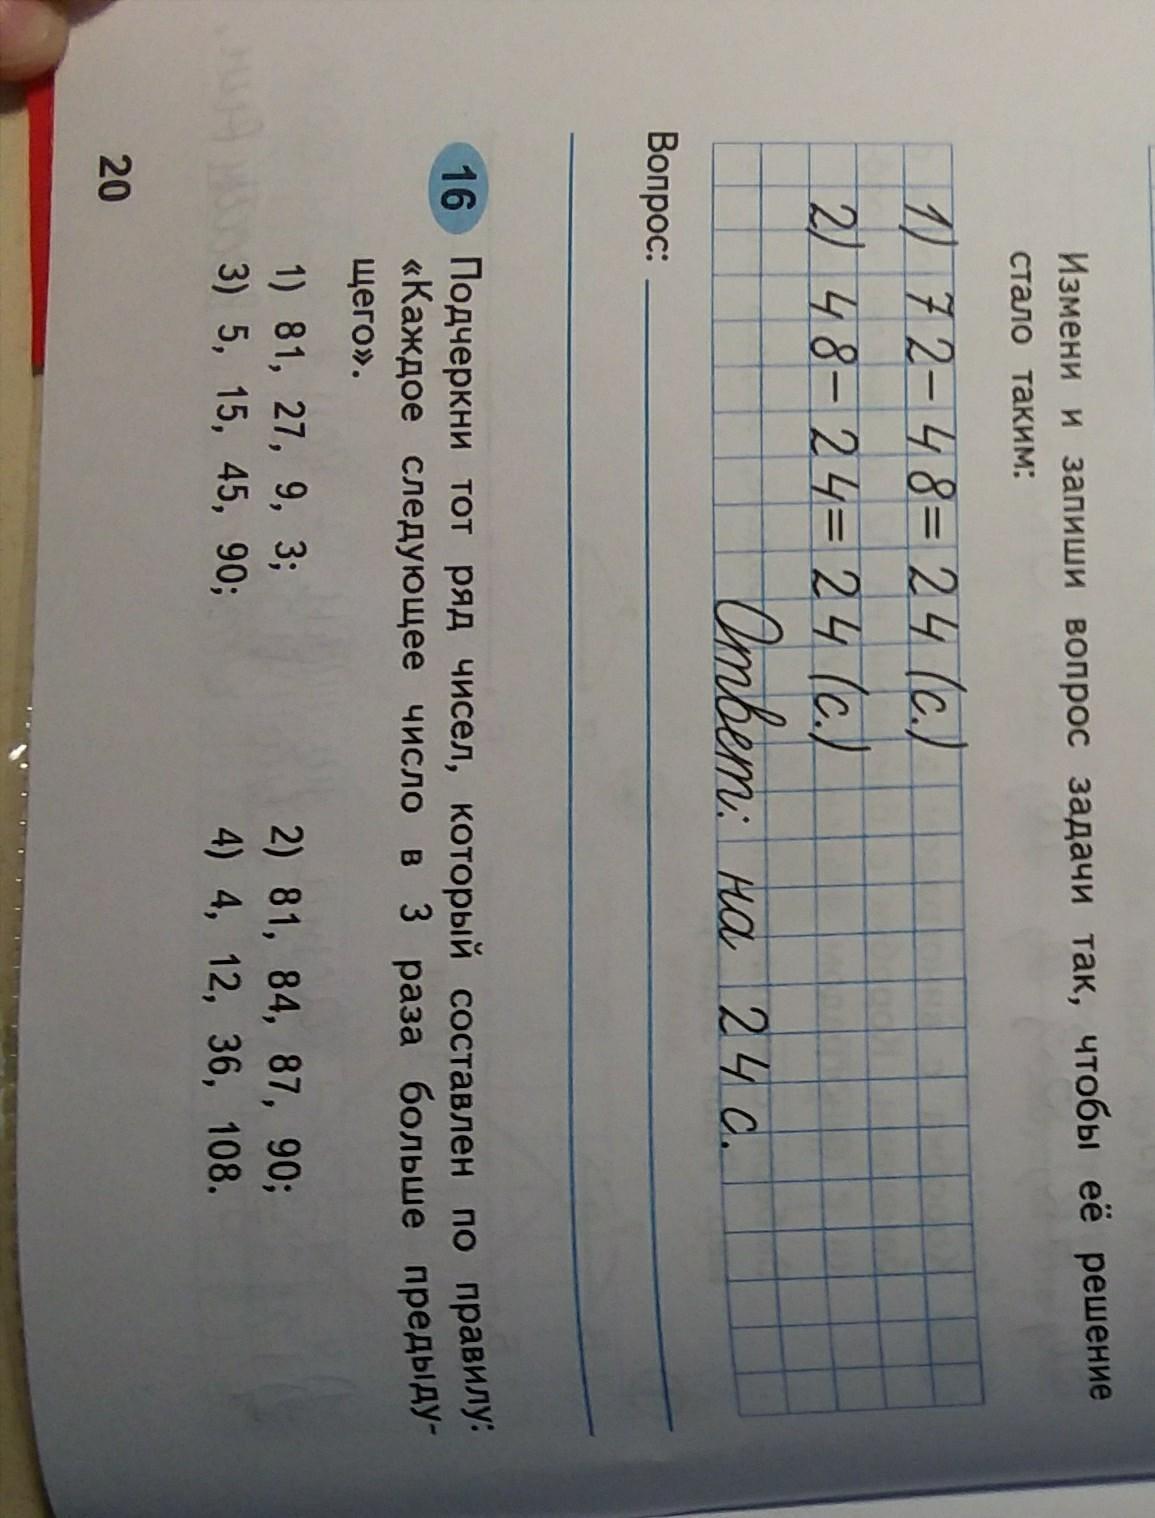 Измени и запиши вопрос задачи так, чтобы её решение
стало таким:
1) 72-48=24 (с.)
2) 48-24=24 (с.)
Ответ: на 24 с.
Вопрос:
16 Подчеркни тот ряд чисел, который составлен по правилу:
«Каждое следующее число в 3 раза больше предыду-
щего».
1) 81, 27, 9, 3; 2) 81, 84, 87, 90;
3) 5, 15, 45, 90; 4) 4, 12, 36, 108.
20